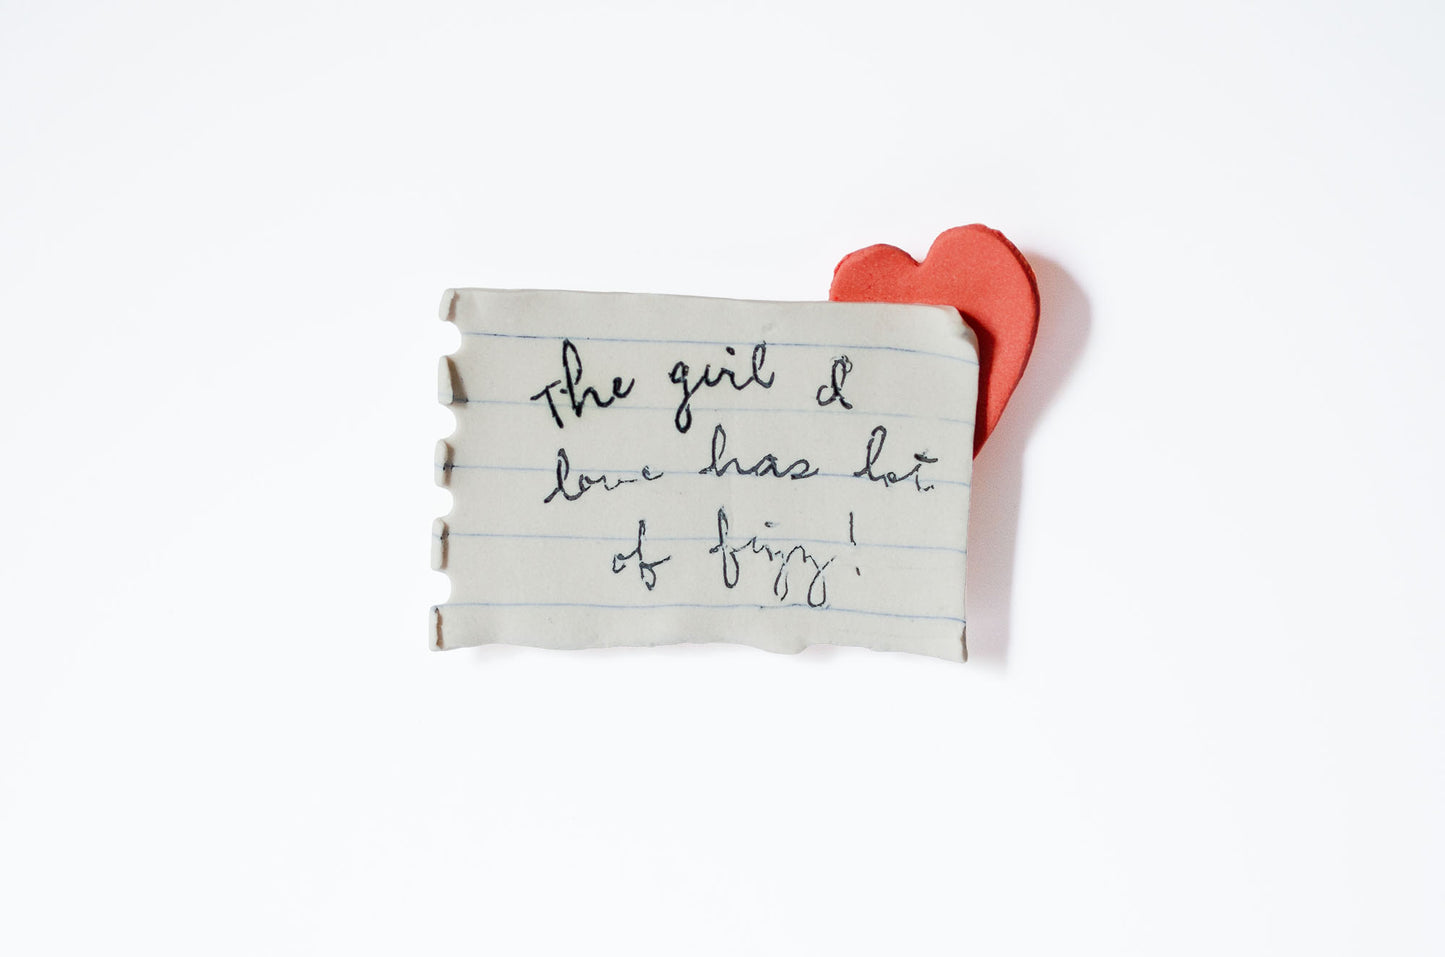 The girl I
love has lot
of fizzy!